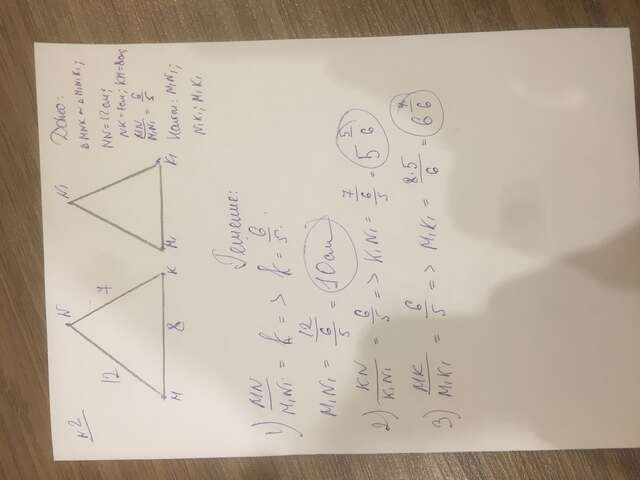 №2
N
N1
12
7
M
8
K
M1
K1
Дано:
△MNK ~ △M1N1K1;
NN = 12см;
NK = 7см; KM = 8см;
MN/M1N1 = 6/5
Найти: M1N1;
N1K1; M1K1
Решение:
1) MN/M1N1 = k => k = 6/5.
M1N1 = 12/(6/5) = 10см
2) KN/K1N1 = 6/5 => K1N1 = 7/(6/5) = 5 5/6
3) MK/M1K1 = 6/5 => M1K1 = 8·5/6 = 6 4/6